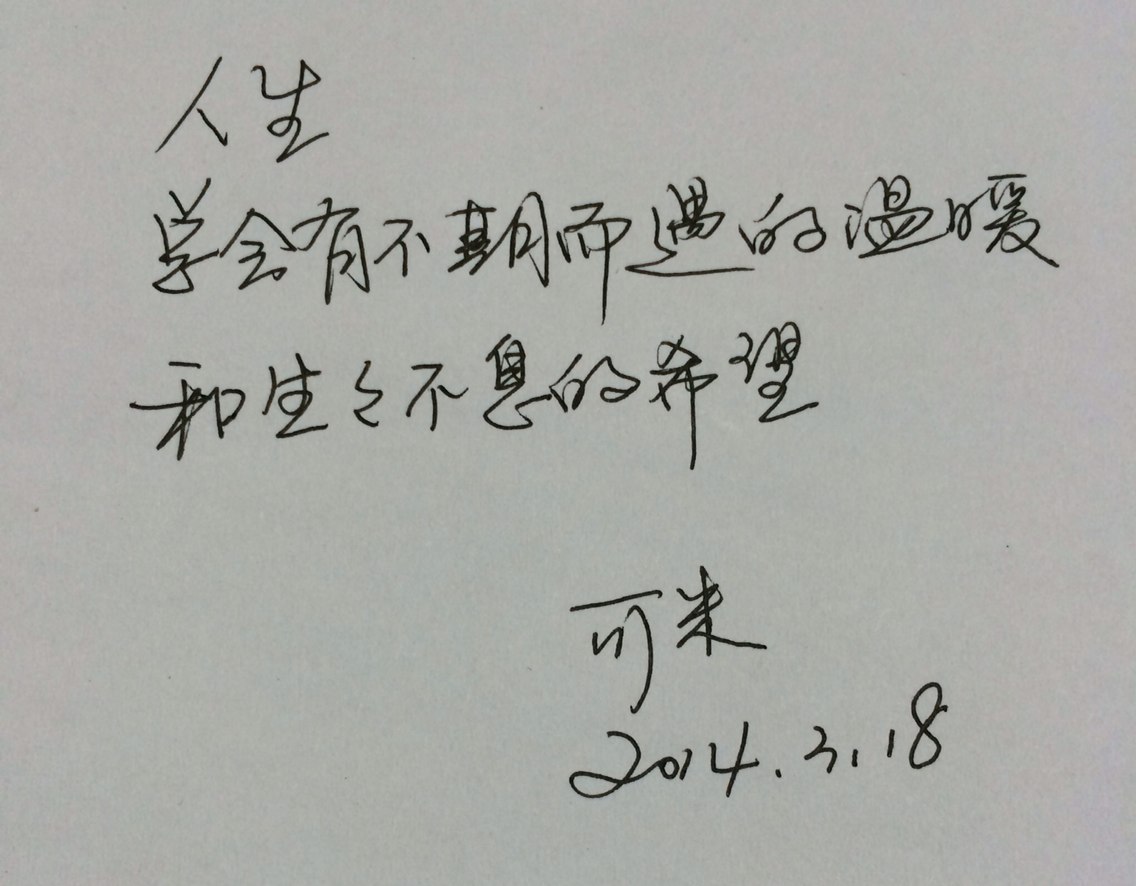 人生
学会有不期而遇的温暖
和生々不息的希望
可米
2014.3.18